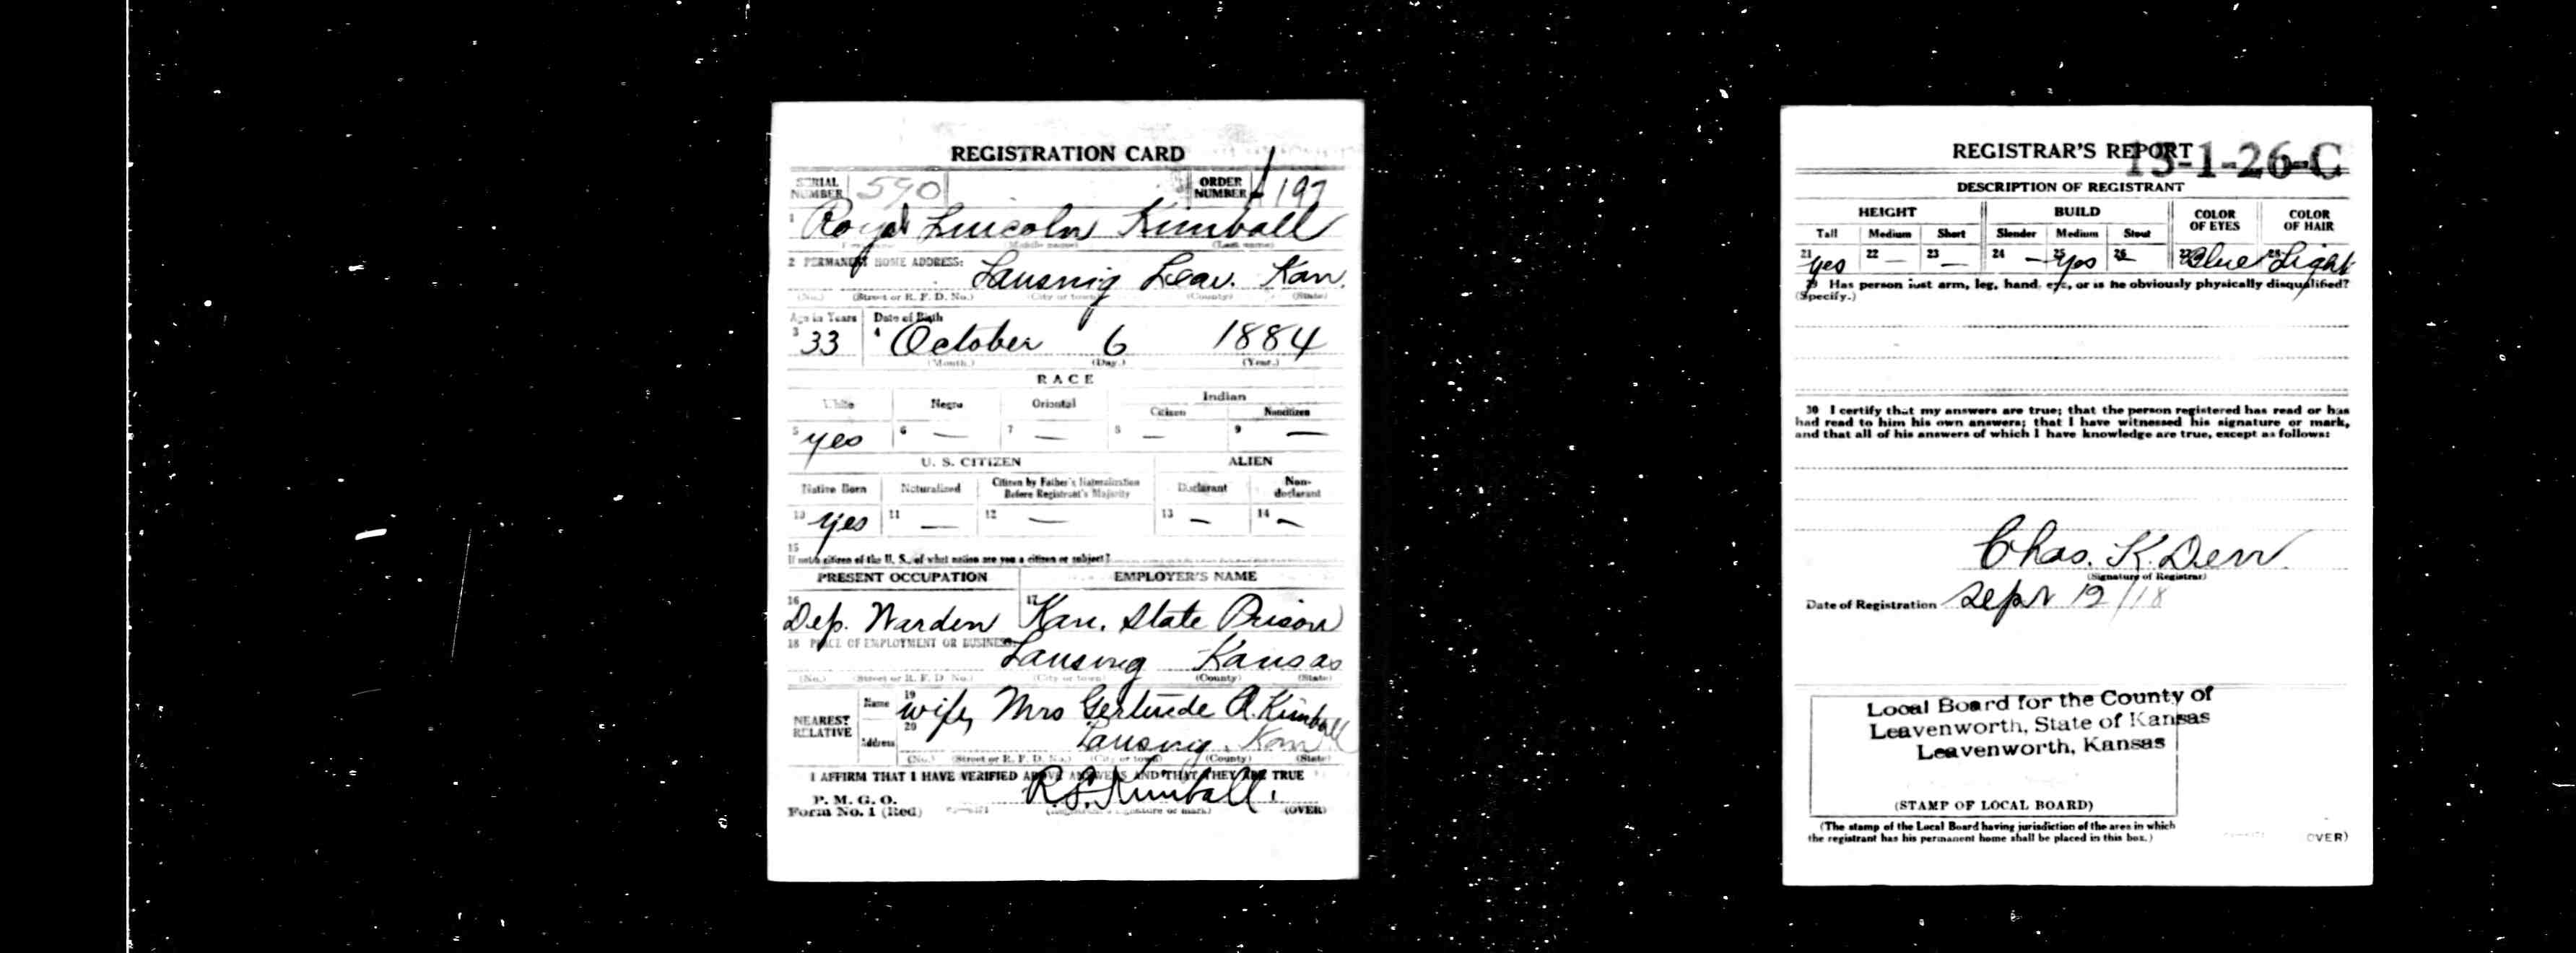 REGISTRATION CARD
SERIAL NUMBER 590 ORDER NUMBER A 197
1 Royal Lincoln Kimball
(Middle name) (Last name)
2 PERMANENT HOME ADDRESS:
Lansing Leav. Kan.
(No.) (Street or R. F. D. No.) (City or town) (County) (State)
Age in Years Date of Birth
3 33 4 October 6 1884
(Month.) (Day.) (Year.)
RACE
White Negro Oriental Indian
Citizen Noncitizen
5 yes 6 — 7 — 8 — 9 —
U. S. CITIZEN ALIEN
Native Born Naturalized Citizen by Father's Naturalization Before Registrant's Majority Declarant Non-declarant
10 yes 11 — 12 — 13 — 14 —
15
If not a citizen of the U. S., of what nation are you a citizen or subject?
PRESENT OCCUPATION EMPLOYER'S NAME
16 Dep. Warden 17 Kan. State Prison
18 PLACE OF EMPLOYMENT OR BUSINESS:
Lansing Kansas
(No.) (Street or R. F. D. No.) (City or town) (County) (State)
NEAREST RELATIVE Name 19 wife, Mrs Gertrude A. Kimball
Address 20 Lansing Kan
(No.) (Street or R. F. D. No.) (City or town) (County) (State)
I AFFIRM THAT I HAVE VERIFIED ABOVE ANSWERS AND THAT THEY ARE TRUE
P. M. G. O.
Form No. 1 (Red) R. L. Kimball.
(Registrant's signature or mark) (OVER)
REGISTRAR'S REPORT
15-1-26-C
DESCRIPTION OF REGISTRANT
HEIGHT BUILD COLOR OF EYES COLOR OF HAIR
Tall Medium Short Slender Medium Stout
21 yes 22 — 23 — 24 — 25 yes 26 — 27 Blue 28 Light
29 Has person lost arm, leg, hand, eye, or is he obviously physically disqualified?
(Specify.)
30 I certify that my answers are true; that the person registered has read or has
had read to him his own answers; that I have witnessed his signature or mark,
and that all of his answers of which I have knowledge are true, except as follows:
Chas. K. Derr
(Signature of Registrar)
Date of Registration Sept 12/18
Local Board for the County of
Leavenworth, State of Kansas
Leavenworth, Kansas
(STAMP OF LOCAL BOARD)
(The stamp of the Local Board having jurisdiction of the area in which
the registrant has his permanent home shall be placed in this box.)
(OVER)